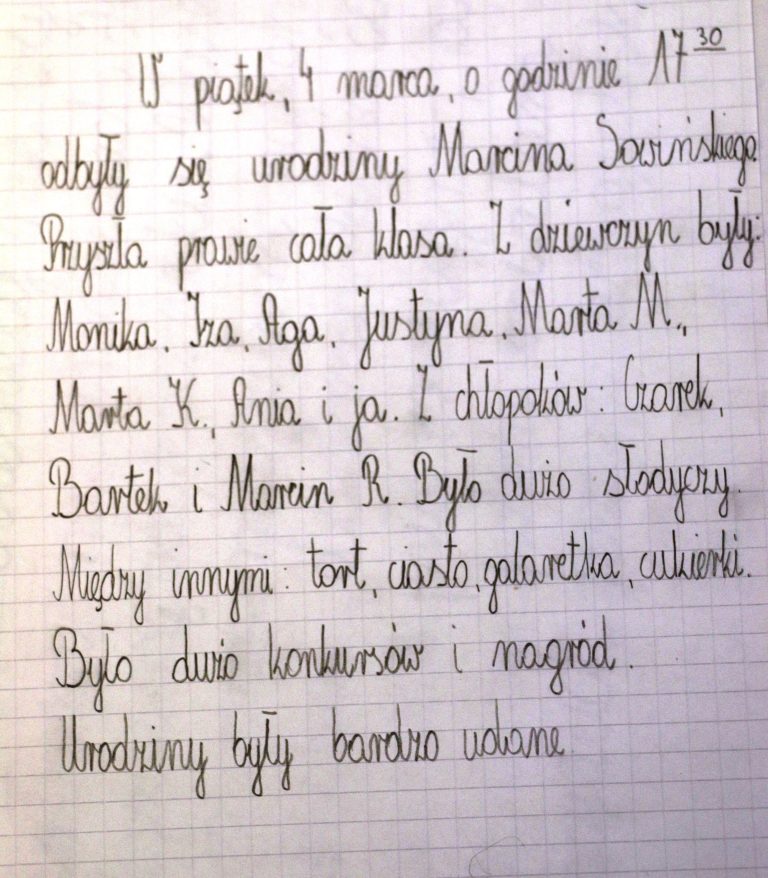 W piątek, 4 marca, o godzinie 17 30
odbyły się urodziny Marcina Sowińskiego.
Przyszła prawie cała klasa. Z dziewczyn były:
Monika, Iza, Aga, Justyna, Marta M.,
Marta K., Ania i ja. Z chłopaków: Czarek,
Bartek i Marcin R. Było dużo słodyczy.
Między innymi: tort, ciasto, galaretka, cukierki.
Było dużo konkursów i nagród.
Urodziny były bardzo udane.